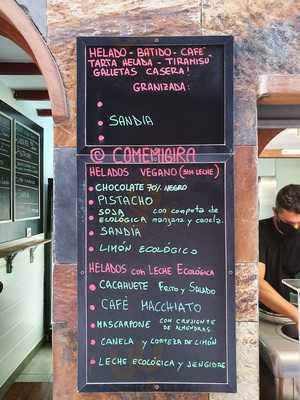 HELADO - BATIDO - CAFE
TARTA HELADA - TIRAMISU
GALLETAS CASERA!
GRANIZADA:
SANDIA
@ COMEMIGIRA
HELADOS VEGANO (SIN LECHE)
CHOCOLATE 70% NEGRO
PISTACHO
SOJA ECOLÓGICA con compota de manzana y canela.
SANDIA
LIMÓN ECOLÓGICO
HELADOS con LECHE ECOLÓGICA
CACAHUETE Frito y Salado
CAFÉ MACCHIATO
MASCARPONE CON CRUJIENTE DE ALMENDRAS
CANELA y CORTEZA DE LIMÓN
LECHE ECOLÓGICA y JENGIBRE